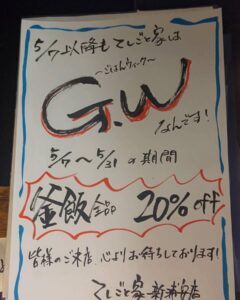 5/7以降もてしごと家は
～ごはんウィーク～
G.W
なんです!
5/7～5/31の期間
釜飯全品 20% off
皆様のご来店、心よりお待ちしております!
てしごと家 新浦安店